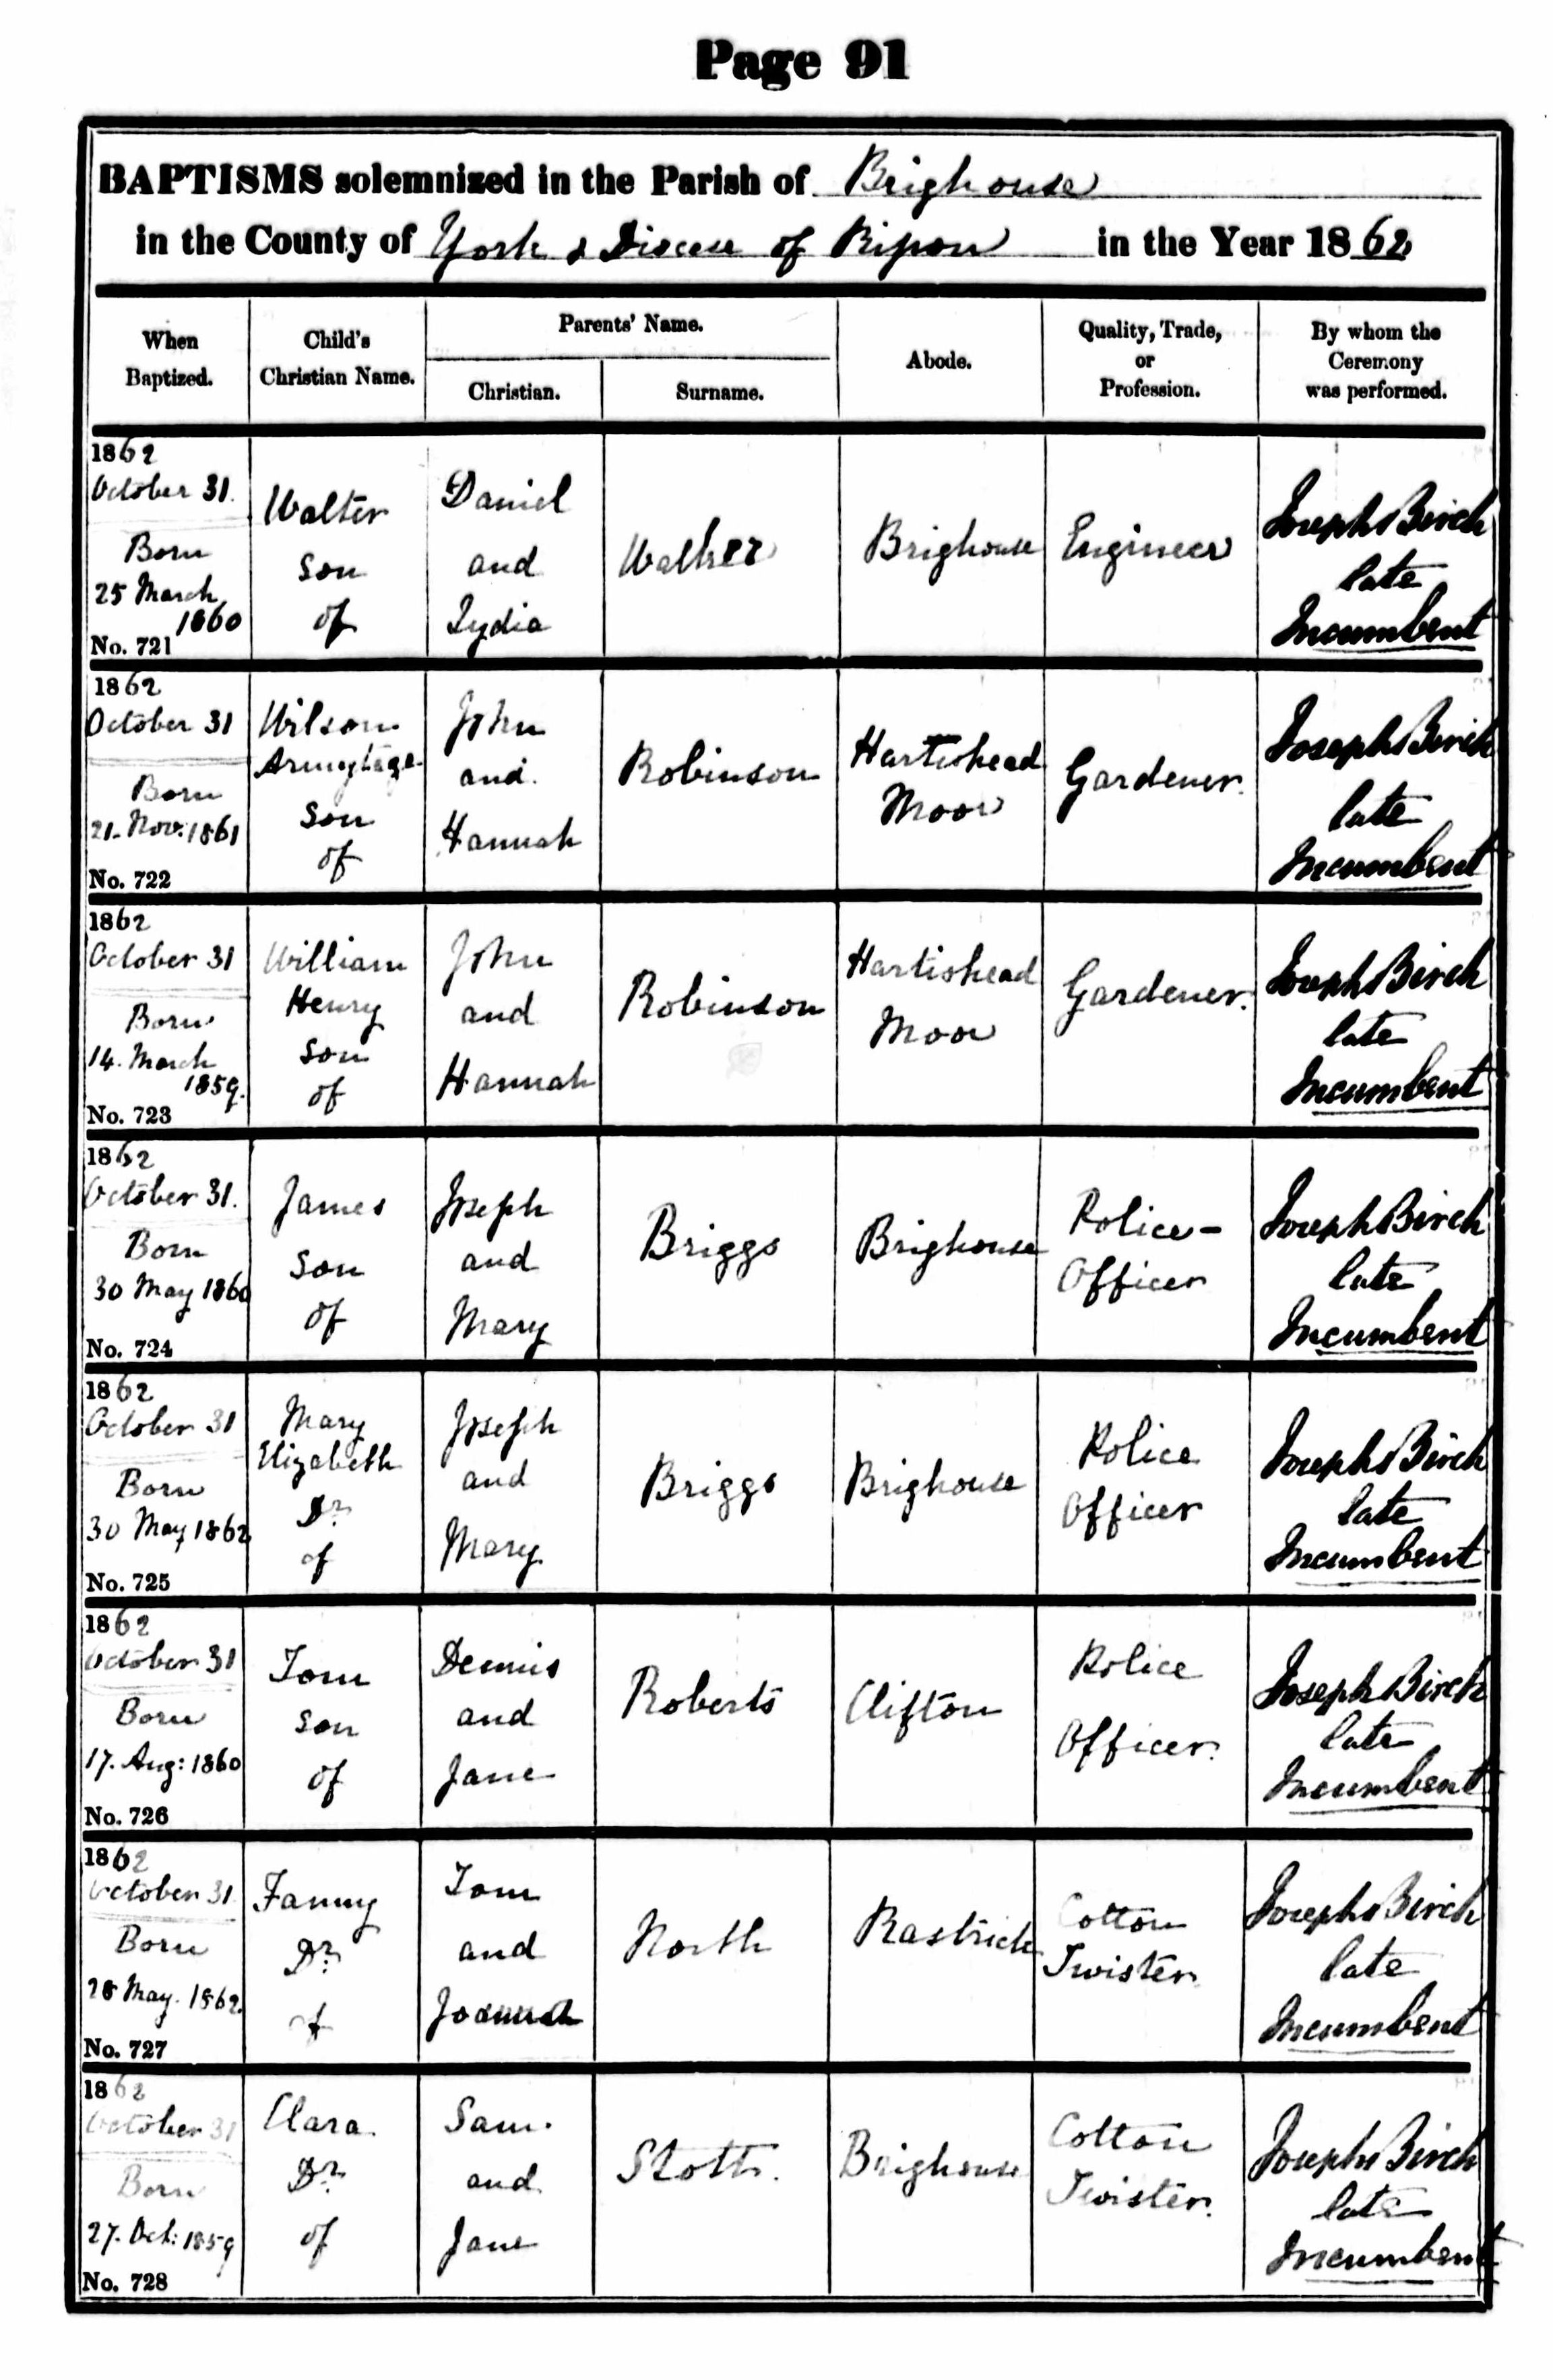 Page 91
BAPTISMS solemnized in the Parish of Brighouse
in the County of York & Diocese of Ripon in the Year 1862
When Baptized.
Child's Christian Name.
Parents' Name.
Christian.
Surname.
Abode.
Quality, Trade, or Profession.
By whom the Ceremony was performed.
1862
October 31.
Born
25 March
1860
No. 721
Walter
son
of
Daniel
and
Lydia
Walker
Brighouse
Engineer
Joseph Birch
late
Incumbent
1862
October 31
Born
21. Nov: 1861
No. 722
Wilson
Armytage
son
of
John
and
Hannah
Robinson
Hartishead
Moor
Gardener.
Joseph Birch
late
Incumbent
1862
October 31
Born
14. March
1859.
No. 723
William
Henry
son
of
John
and
Hannah
Robinson
Hartishead
Moor
Gardener.
Joseph Birch
late
Incumbent
1862
October 31.
Born
30 May 1860
No. 724
James
son
of
Joseph
and
Mary
Briggs
Brighouse
Police-
Officer
Joseph Birch
late
Incumbent
1862
October 31
Born
30 May 1862
No. 725
Mary
Elizabeth
Dr.
of
Joseph
and
Mary.
Briggs
Brighouse
Police
Officer
Joseph Birch
late
Incumbent
1862
October 31
Born
17. Aug: 1860
No. 726
Tom
son
of
Dennis
and
Jane
Roberts
Clifton
Police
Officer.
Joseph Birch
late
Incumbent
1862
October 31.
Born
28 May. 1862.
No. 727
Fanny
Dr.
of
Tom
and
Joannah
North
Rastrick
Cotton
Twister.
Joseph Birch
late
Incumbent
1862
October 31
Born
27. Oct: 1859
No. 728
Clara.
Dr.
of
Sam.
and
Jane
Stott.
Brighouse
Cotton
Twister.
Joseph Birch
late
Incumbent